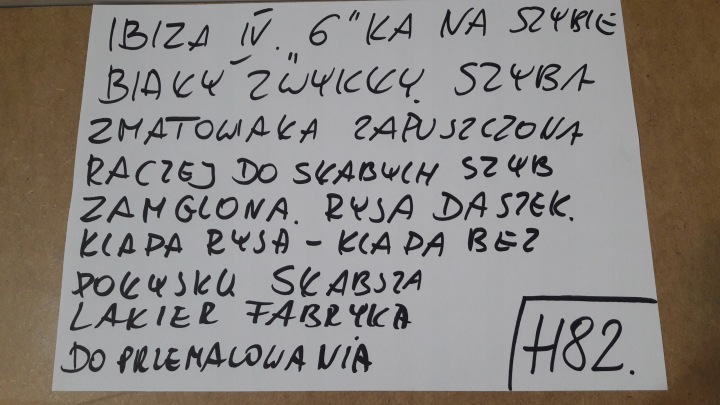 IBIZA IV. 6"KA NA SZYBIE
BIAŁY "ZWYKŁY. SZYBA
ZMATOWIAŁA ZAPUSZCZONA
RACZEJ DO SŁABYCH SZYB
ZAMGLONA. RYSA DASZEK.
KLAPA RYSA - KLAPA BEZ
POŁYSKU SŁABSZA
LAKIER FABRYKA
DO PRZEMALOWANIA
H82.